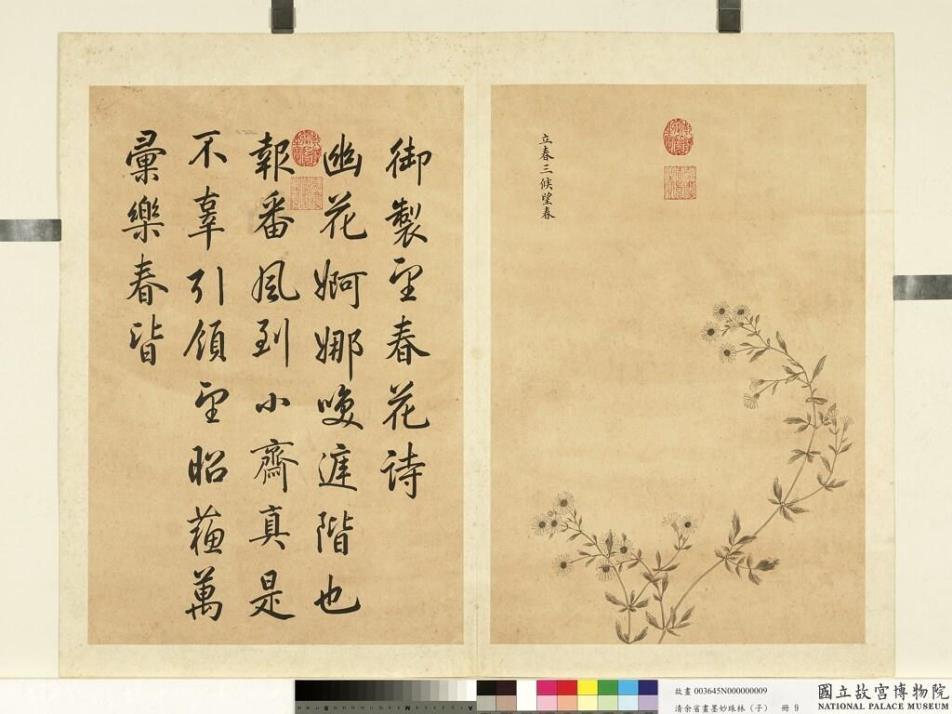 立春三候望春
御製望春花詩
幽花婀娜暎庭階也
報番風到小齋真是
不辜引領望昭蘓萬
彙樂春皆
故畫 003645N000000009
清余省畫墨妙珠林（子） 冊 9
國立故宮博物院
NATIONAL PALACE MUSEUM